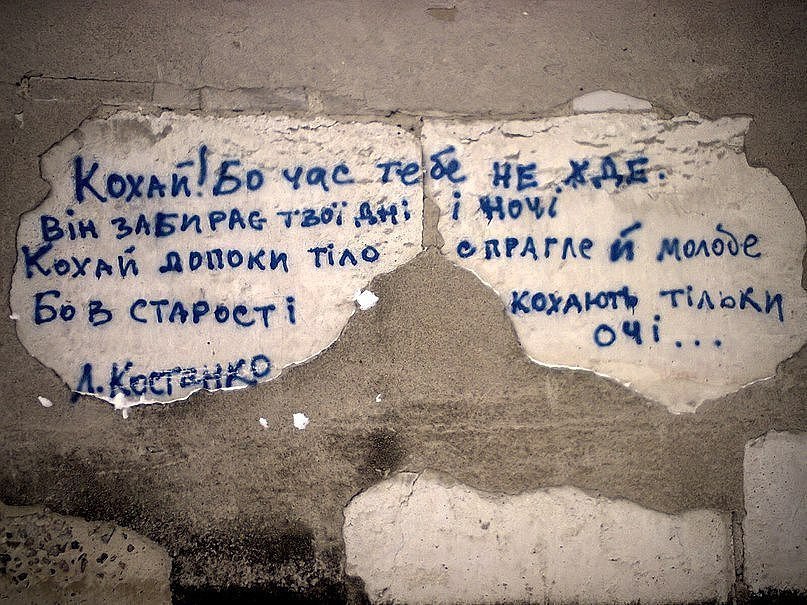 Кохай! Бо час тебе не жде.
Він забирає твої дні і ночі
Кохай допоки тіло спрагле й молоде
Бо в старості кохають тільки
очі...
Л. Костенко